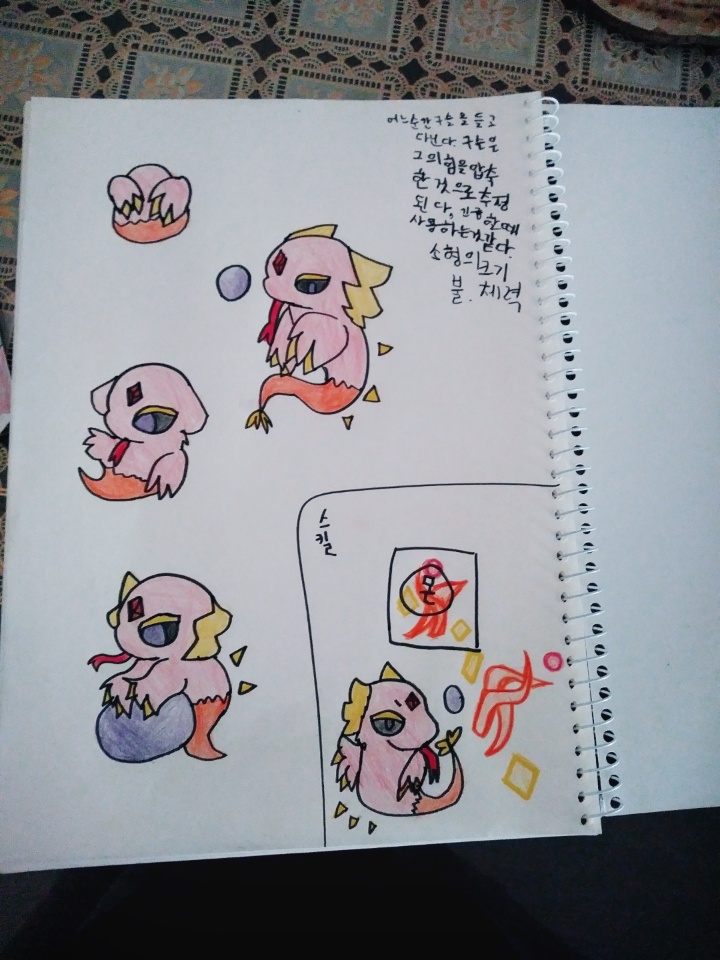 어느순간 구슬을 들고
다닌다. 구슬은
그의 힘을 압축
한 것으로 추정
된다, 긴급한때
사용하는것같다.
소형의크기
불. 체력
스킬
몬